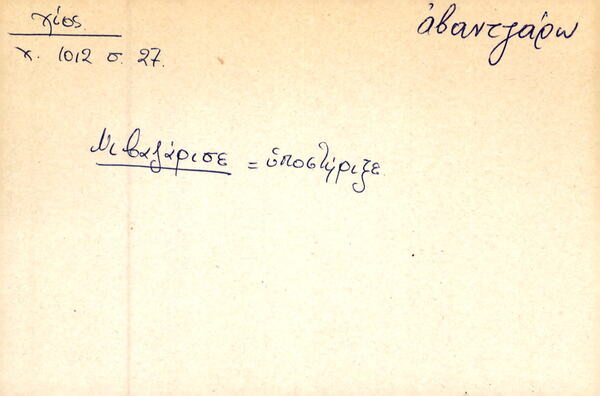 Χίος
χ. 1012 σ. 27.
ἀβαντζάρω
Μὶ βαζάρισε = ὑποστήριξε